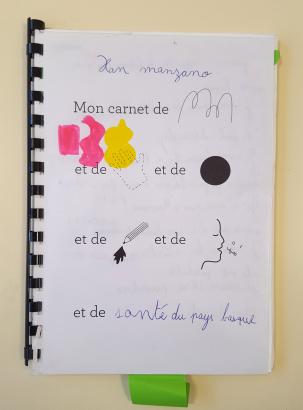 Han manzano
Mon carnet de
et de et de
et de et de
et de santé du pays basque